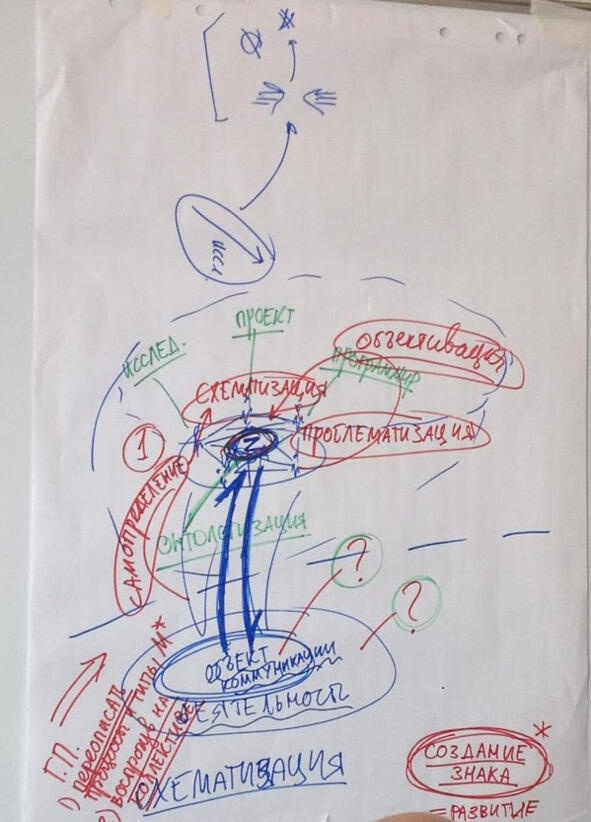 иссл.
ПРОЕКТ
ИССЛЕД.
ОБЪЕКТИВАЦИЯ
ПРОГРАММИР
СХЕМТИЗАЦИЯ
ПРОБЛЕМАТИЗАЦИЯ
1
САМООПРЕДЕЛЕНИЕ
ОНТОЛОГИЗАЦИЯ
?
?
ОБЪЕКТ
КОММУНИКАЦИИ
ДЕЯТЕЛЬНОСТЬ
СХЕМАТИЗАЦИЯ
Г.П.
1) ПЕРЕОПИСАТЬ
ПРОЦЕССЫ И ТИПЫ М*
2)
СОЗДАНИЕ
ЗНАКА
*
= РАЗВИТИЕ